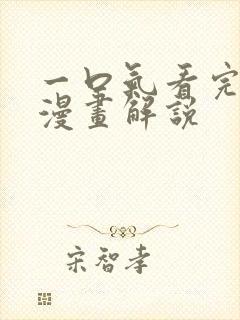 一口氣看完
漫畫解説
宋智孝